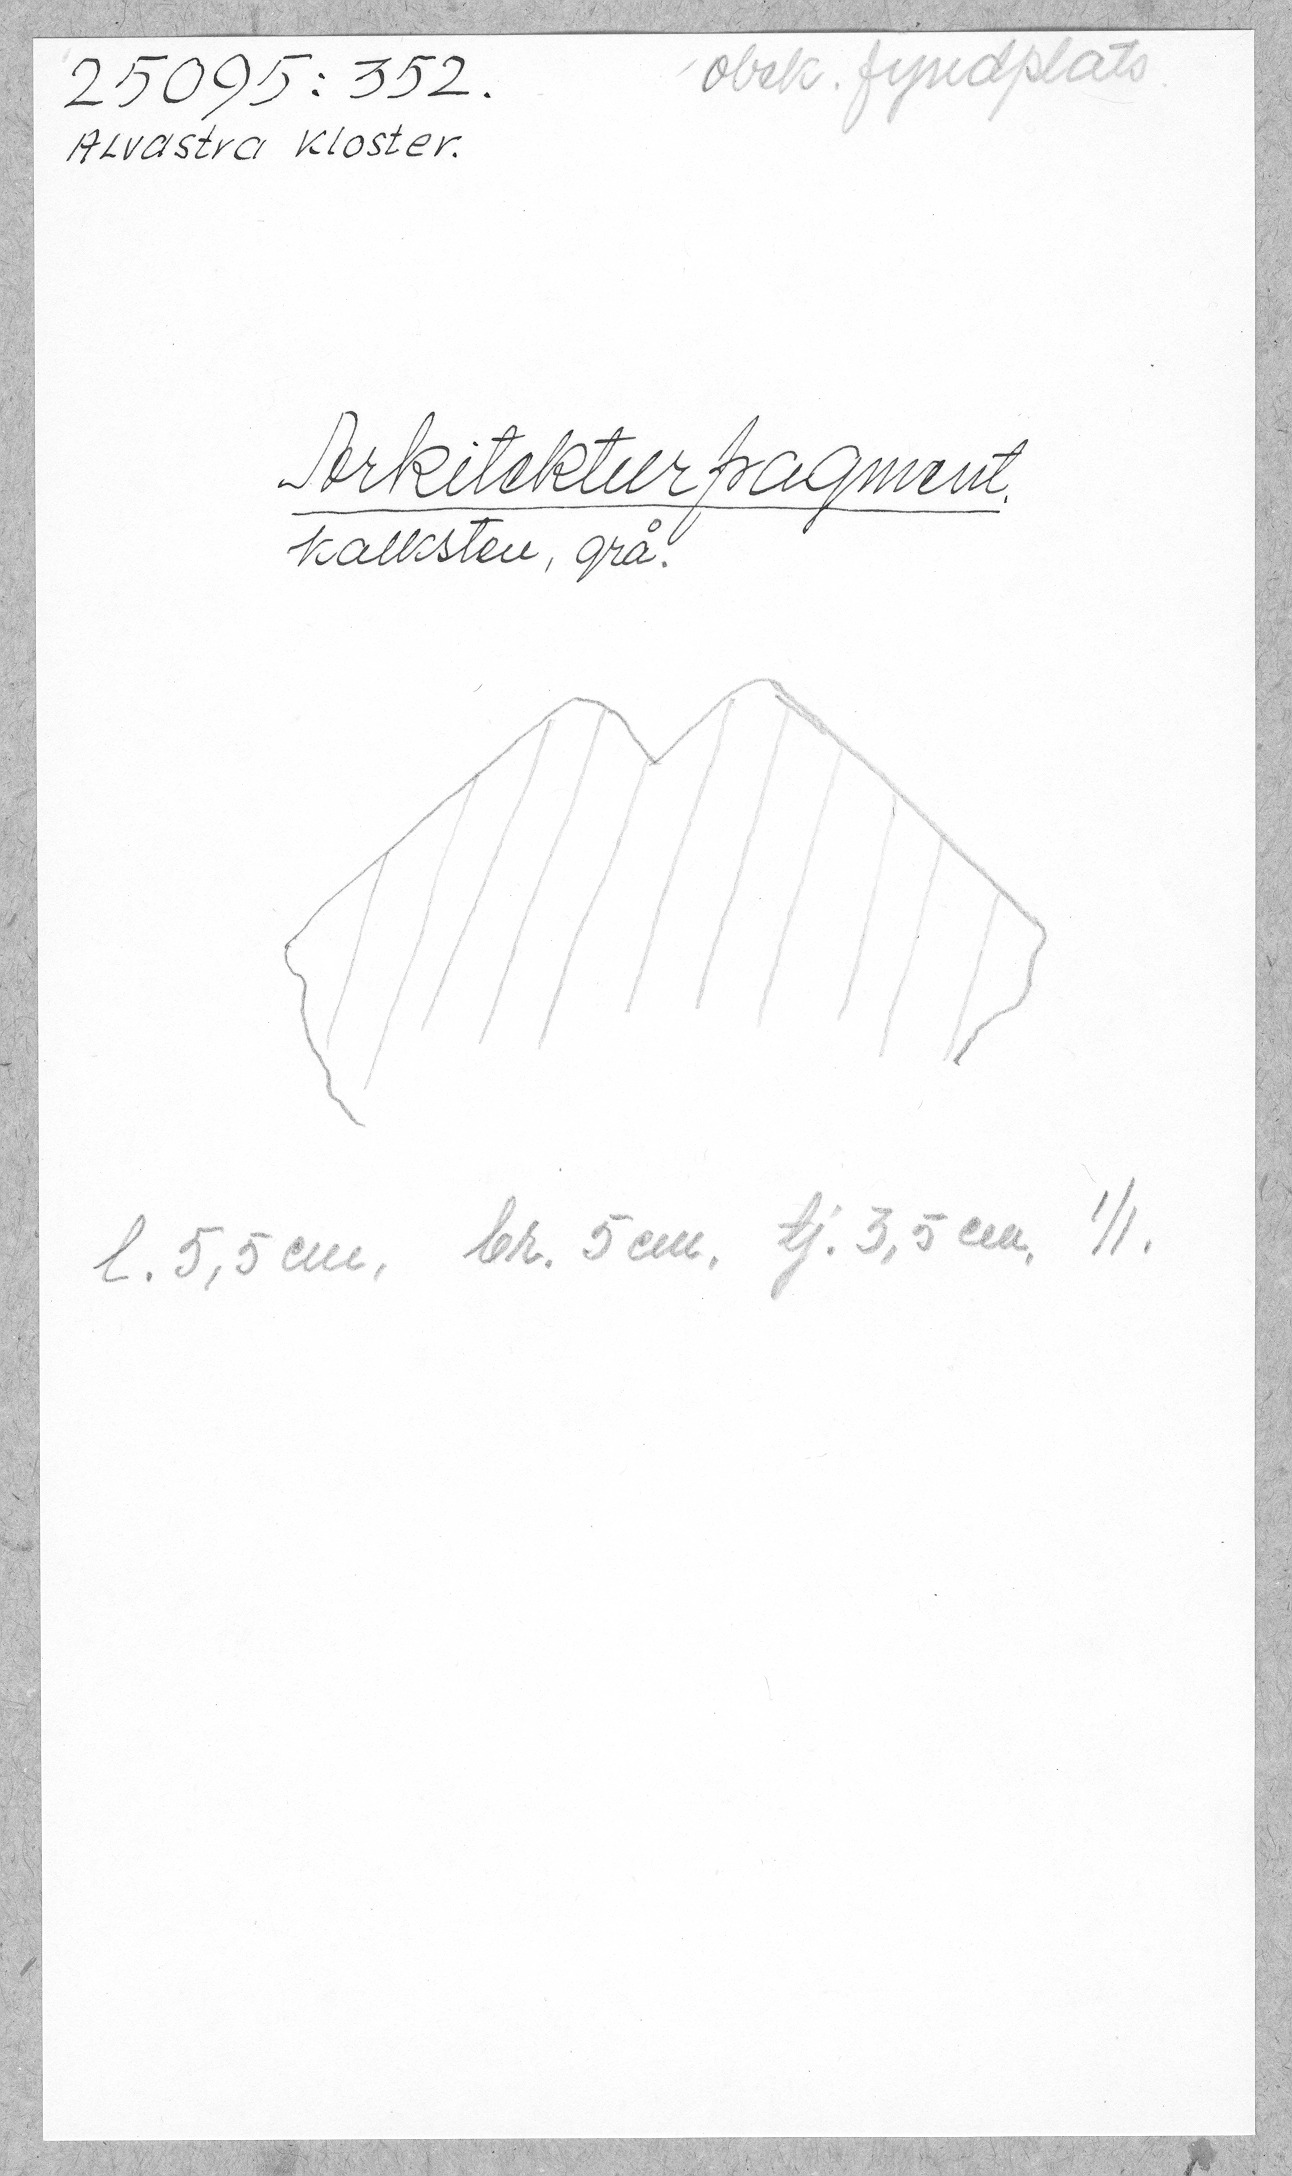 25095:352.
obek. fyndplats
Alvastra Kloster.
Arkitekturfragment.
kalksten, grå.
l. 5,5 cm, br. 5 cm, tj. 3,5 cm, 1/1.